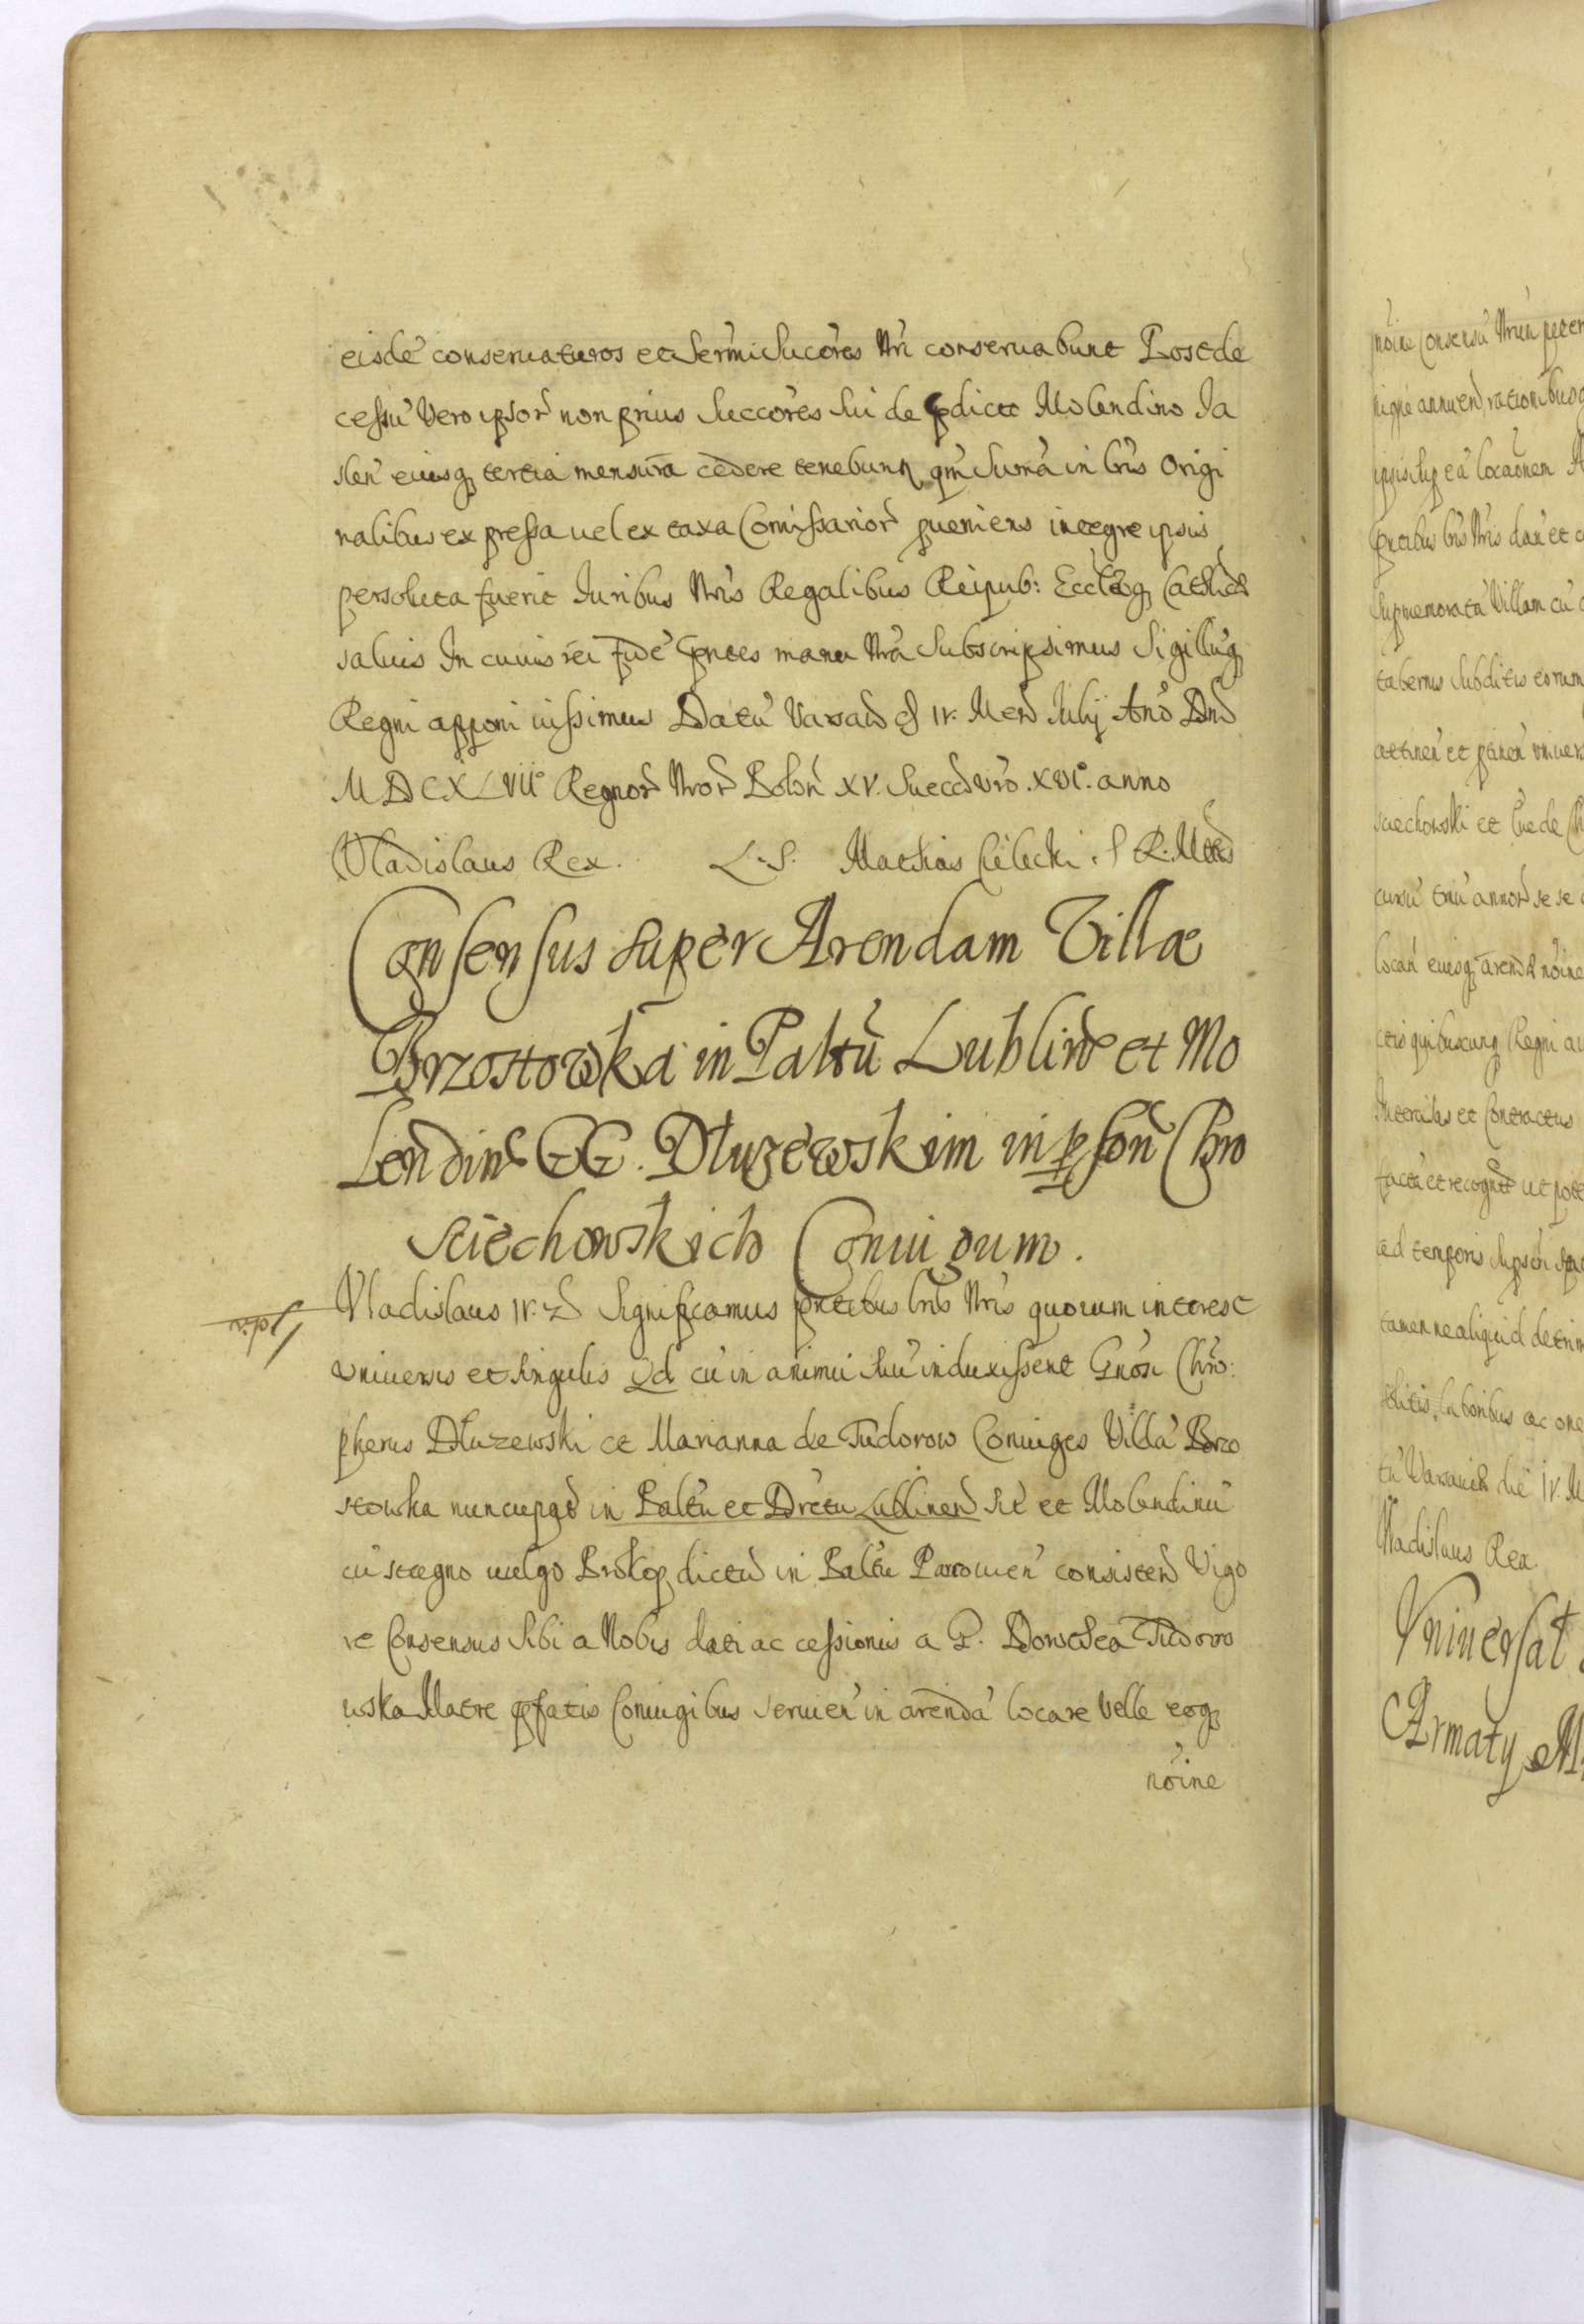 eisdē conseruaturos et Serm̄i Succ̄ores Nr̄i conseruabunt Post de
cessū Vero ipsor non prius Succ̄ores sui de p̄dicto Molendino Ja
slen̄ eiusq tertia mensura cedere tenebunt qm̄ Sum̄a in lr̄is Origi
nalibus expressa uel ex taxa Com̄issarior proueniens integre ipsis
persoluta fuerit Iuribus Nr̄is Regalibus Reipub: Ecclāeq Catholicæ
saluis In cuius rei fidē p̄ntes manu Nrā Subscripsimus Sigillūq
Regni apponi iussimus Datū Varsaū d IV. Men Julij Anō Dnī
MDCXLVIIo Regnor Nror Polōn XV. Suecd vrō. XVIo. anno
Vladislaus Rex. L. S. Mathias Cielecki. S R. Mtis
Consensus super Arendam Villæ
Brzostowka in Paltū Lublin et Mo
lendini GG. Dłuzewskim in pson Chro
sciechowskich Coniugum.
Vladislaus IV. Significamus p̄ntibus lris Nris quorum interest
vniuersis et singulis Qd cū in animū suū induxissent Gn̄osi Chrō:
pherus Dłuzewski et Marianna de Tudorow Coniuges Villā Brzo
stowka nuncupat in Paltū et Drctu Lublinen Sit et Molendinū
cū stagno uulgo Prokop dictu in Paltū Parcouien̄ consisten Vigo
re Consensus Sibi a Nobis dati ac cessionis a G. Dorothea Tudoro
wska Matre p̄fatis Coniugibus seruien̄ in arendā locare Velle eoq
nōine
nōine Consensū Nrum peter
nigne annuend rationibusq
ptibus lris Nris dan̄ et c
supmemoratā Villam cū
tabernis Subditis eorum
attinen̄ et ptinen̄ vniuers
sciechowski et
cursū triū annor se se
locan̄ eiusq arendæ nōine
ctis quibuscunq Regni au
Intercisas et Contractus
facta et recognit ut pote
ad temporis
tamen ne aliquid detrim
litis, laboribus ac one
tū Varsauiæ die IV. M
Vladislaus Rex.
Vniuersał
Armaty M